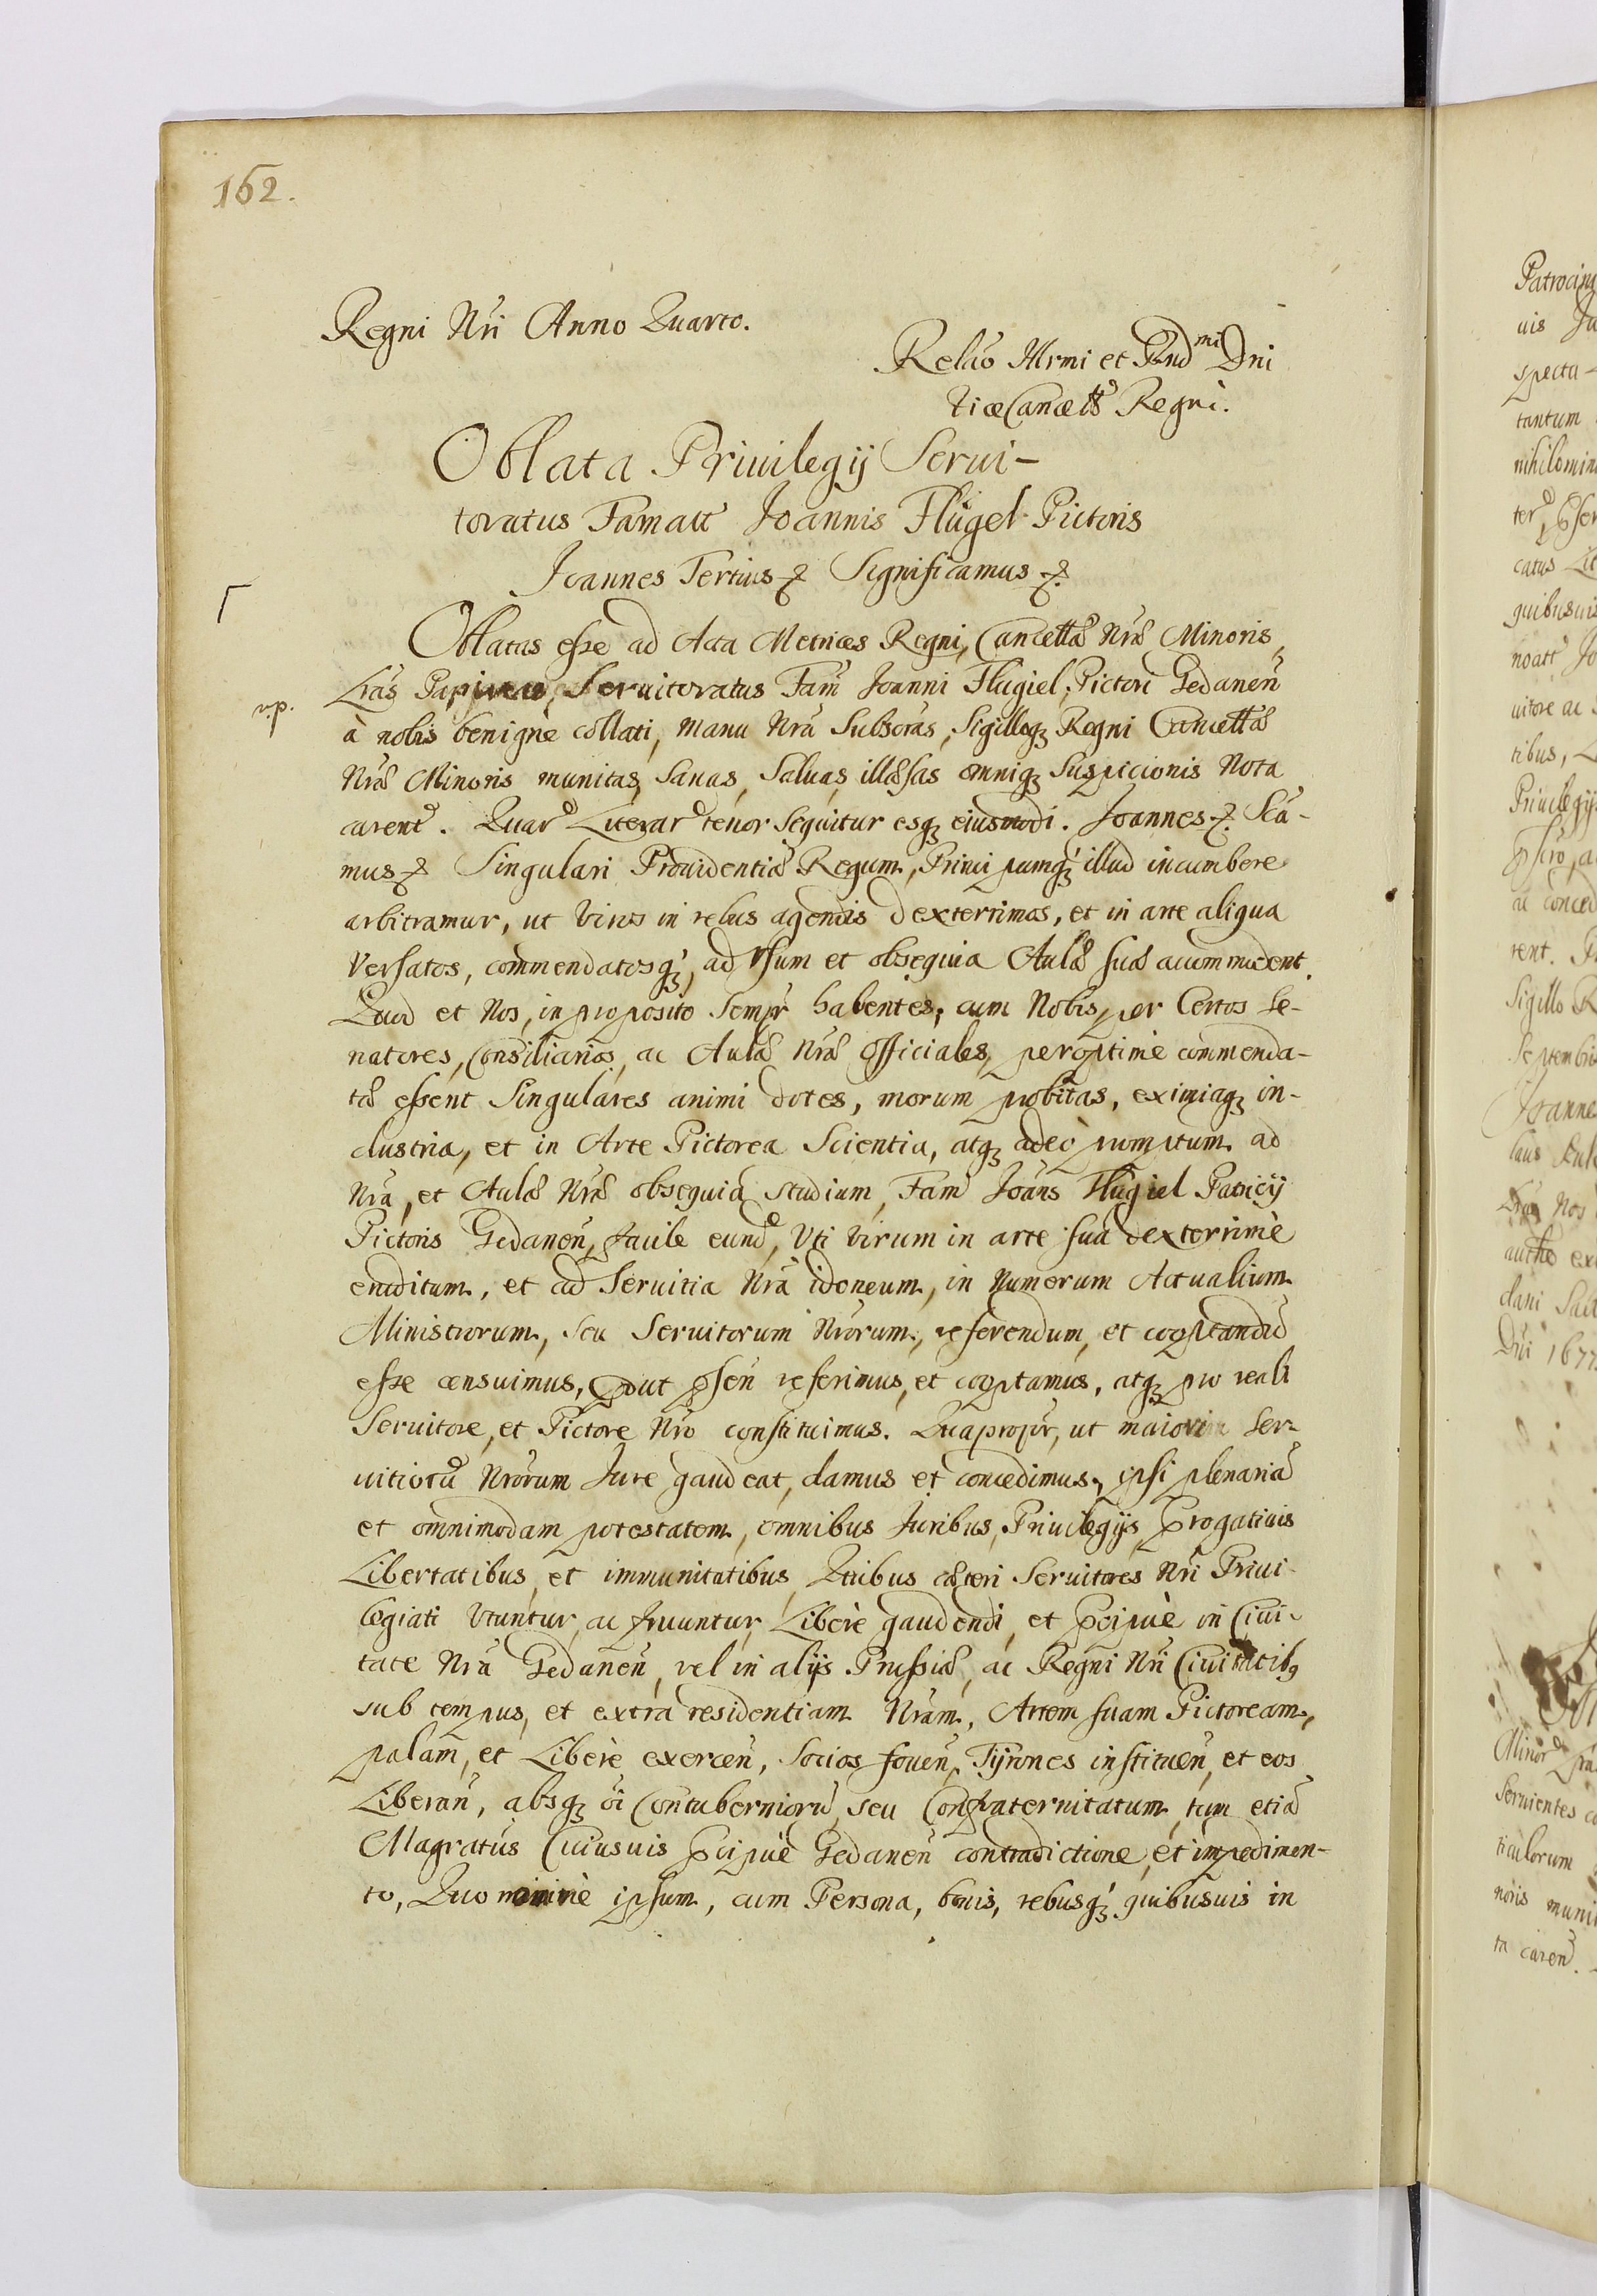 162.
Regni Nri Anno Quarto.
Relao Illrmi et Rndmi Dni
Vicecancellr Regni.
Oblata Priuilegij Serui-
toratus Famati Joannis Flügel Pictoris
Joannes Tertius etc Significamus etc.
Oblatas esse ad Acta Metrices Regni, Cancellae Nrae Minoris,
Lras Papireas, Seruitoratus Fam Joanni Flügiel, Pictori Gedanen
v.p.
à nobis benignè collati, manu Nra Subscras, Sigilloq Regni Cancellae
Nrae Minoris munitas, Sanas, Saluas, illaesas omniq Suspicionis Nota
carent. Quar Literar tenor Sequitur esq eiusmodi. Joannes etc. Sca-
mus etc Singulari Prouidentiae Regum, Principumq illud incumbere
arbitramur, ut viros in rebus agendis dexterrimos, et in arte aliqua
Versatos, commendatosq, ad Vsum et obsequia Aulae suae accommodent.
Quod et Nos, in proposito Sempr habentes, cum Nobis, per Certos Se-
natores, Consiliarios, ac Aulae Nrae Officiales, peroptimè commenda-
tae essent Singulares animi dotes, morum probitas, eximiaq in-
dustria, et in Arte Pictorea Scientia, atq adeò promptum ad
Nra, et Aulae Nrae obsequia studium, Fam Joans Flügiel Patricij
Pictoris Gedanen, facile eund, Vti virum in arte sua dexterrimè
eruditum, et ad Seruitia Nra idoneum, in Numerum Actualium
Ministrorum, seu Seruitorum Nrorum, referendum, et cooptandu
esse censuimus, prout psen referimus, et cooptamus, atq pro reali
Seruitore, et Pictore Nro constituimus. Quapropr, ut maiorim Ser-
uitioru Nrorum Jure gaudeat, damus et concedimus, ipsi plenaria
et omnimodam potestatem, omnibus Juribus, Priuilegijs, Progatiuis
Libertatibus, et immunitatibus, Quibus caeteri Seruitores Nri Priui-
legiati Vtuntur, ac fruuntur, Liberè gaudendi, et pcipuè in Ciui-
tate Nra Gedanen, vel in alijs Prussiae, ac Regni Nri Ciuitatibq
sub tempus, et extra residentiam Nram, Artem suam Pictoream,
palam, et Liberè exercen, Socios fouen, Tyrones instituen, et eos
Liberan, absq oi Contuberniorû, seu Confraternitatum, tum etia
Magratus Cuiusuis pcipuè Gedanen contradictione, et impedimen-
to, Quo minimè ipsum, cum Persona, bonis, rebusq quibusuis in